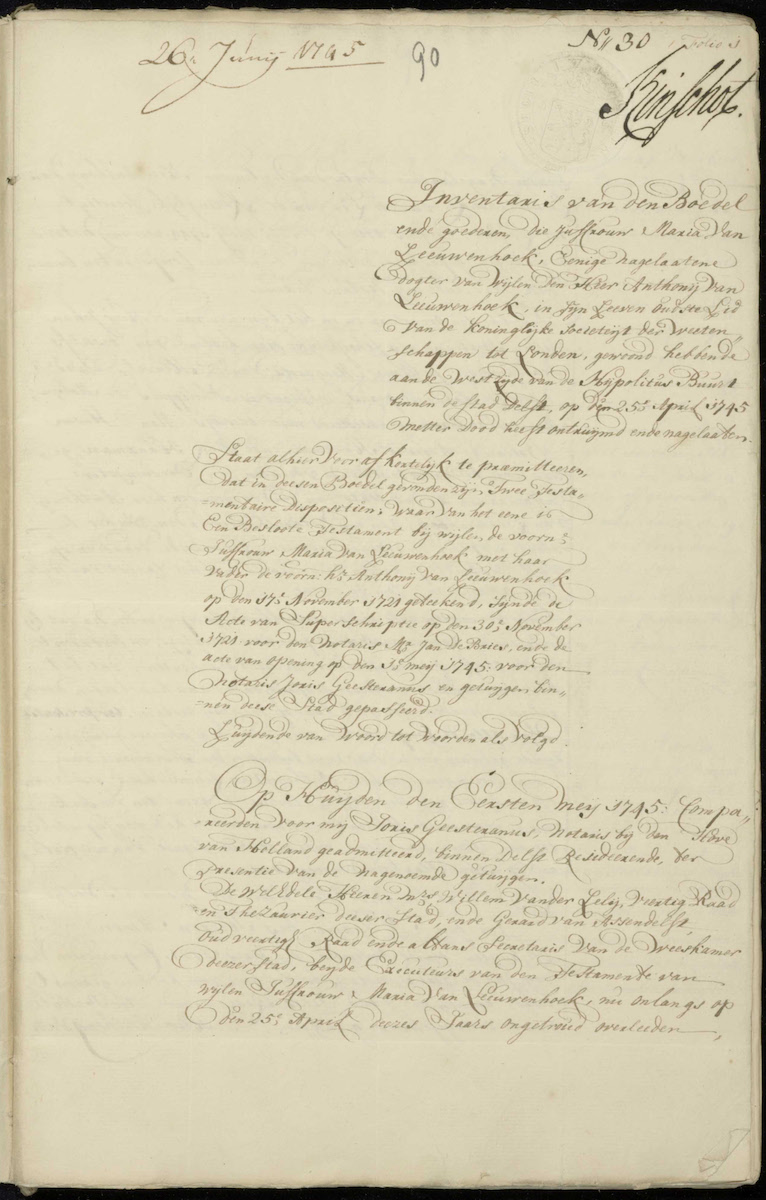 26e Junij 1745
90
No 30
folio 1
Kinschot.
Inventaris van den Boedel
ende goederen, die Juffrouw Maria van
Leeuwenhoek, Eenige nagelaatene
dogter van wijlen den Heer Anthonij van
Leeuwenhoek, in sijn Leeven oudste Lid
van de koninglijke Societeijt der weeten„
schappen tot Londen, gewoond hebbende
aan de Westzijde van de Hijpolitus Buurt
binnen de stad Delft, op den 25e April 1745
metter dood heeft ontruijmd ende nagelaaten.
Staat alhier voor af kortelijk te praemitteeren,
dat in deesen Boedel gevonden zijn Twee Testa-
=mentaire dispositien, waar van het eene is
Een Besloote Testament bij wijlen de voorn:
Juffrouw Maria van Leeuwenhoek met haar
vader de voorn: hr Anthonij van Leeuwenhoek
op den 17e November 1721 geteekend, sijnde de
Acte van Superschriptie op den 30e November
1721 voor den Notaris Mr Jan de Bries, ende de
acte van opening op den 1e meij 1745 voor den
Notaris Joris Geesteranus en getuijgen bin„
=nen deese Stad gepasseerd.
Luijdende van woord tot woorden als volgd.
Op Huijden den Eersten meij 1745: Compa„
reerden voor mij Joris Geesteranus, Notaris bij den Hove
van Holland geadmitteerd, binnen Delft Resideerende, ter
presentie van de nagenoemde getuijgen.
De WelEdele Heeren Mrs Willem vander Lelij, veertig Raad
en Thezaurier deeser Stad, ende Gerard van Assendelft
Oud veertig Raad ende althans Secretaris van de Weeskamer
deezer stad, beijde Executeurs van den Testamente van
wijlen Juffrouw Maria van Leeuwenhoek, nu onlangs op
den 25e April deezes Jaars ongetroud overleeden,